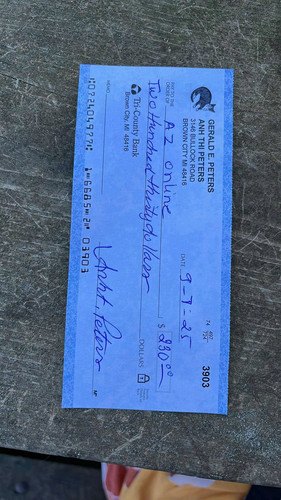 GERALD E. PETERS
ANH THI PETERS
3146 BULLOCK ROAD
BROWN CITY MI 48416
3903
DATE 9-7-25
PAY TO THE ORDER OF A2 online $ 230.00
Two Hundred thirty dollars DOLLARS
Tri-County Bank
Brown City, MI 48416
MEMO
Anh t. Peters